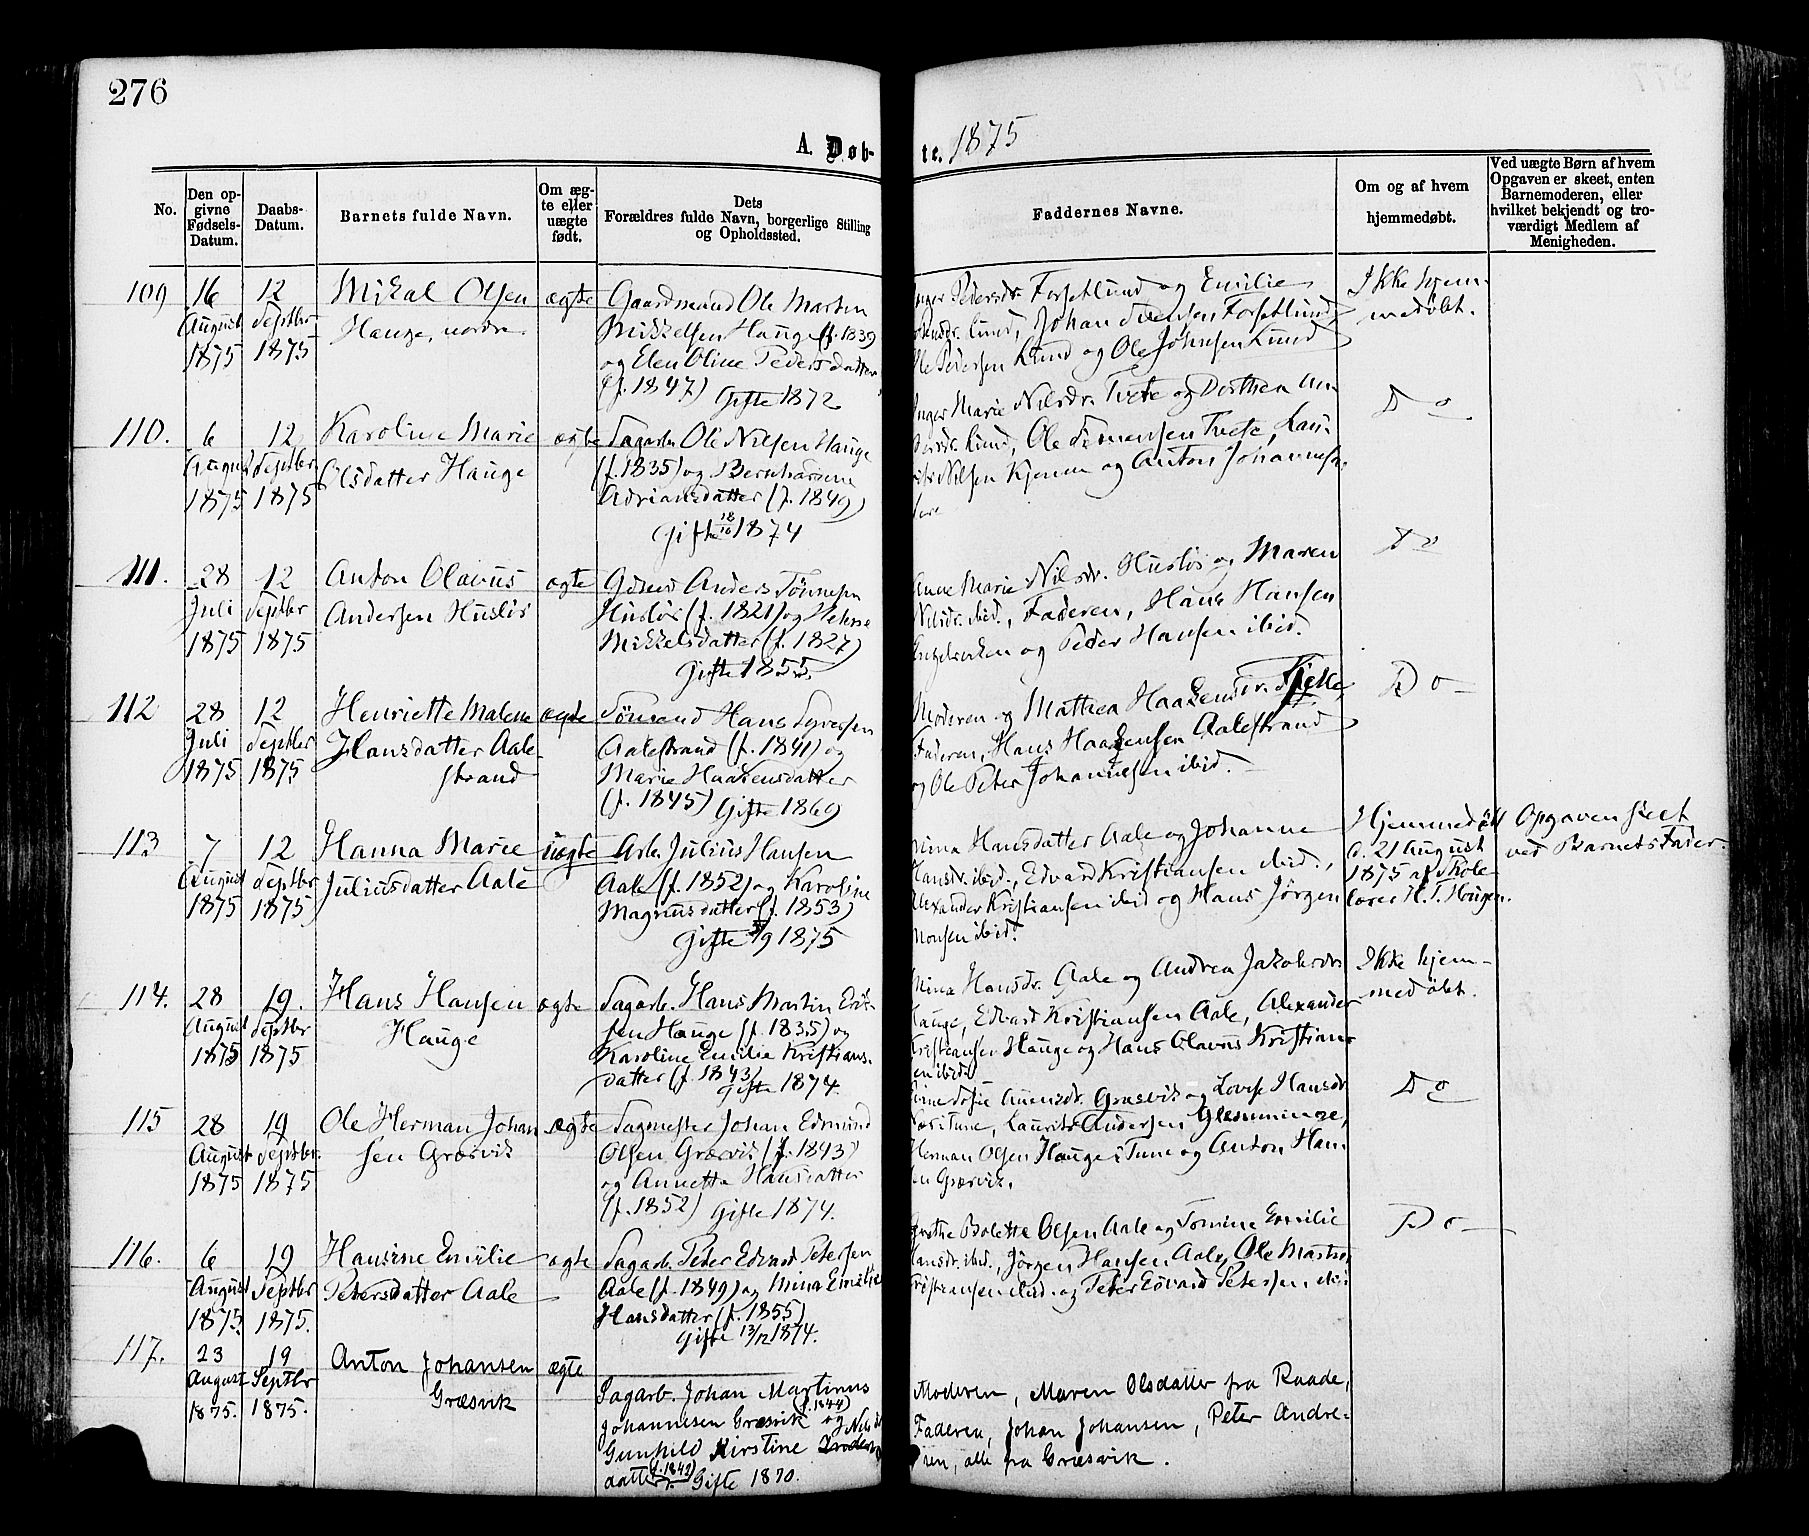 276
A. Døb-
te. 1875
No.
Den op-
givne
Fødsels-
Datum.
Daabs-
Datum.
Barnets fulde Navn.
Om æg-
te eller
uægte
født.
Dets
Forældres fulde Navn, borgerlige Stilling
og Opholdssted.
Faddernes Navne.
Om og af hvem
hjemmedøbt.
Ved uægte Børn af hvem
Opgaven er skeet, enten
Barnemoderen, eller
hvilket bekjendt og tro-
værdigt Medlem af
Menigheden.
109
16
August
1875
12
Septbr
1875
Mikal Olsen
Hauge, nordre
ægte
Gaardmand Ole Martin
Mikkelsen Hauge (f. 1839
og Elen Oline Pedersdatter
(f. 1847) Gifte 1872
Pedersdr. Forsetlund og Emilie
Lund, Johan Svensen Forsetlund,
Pedersen Lund og Ole Johnsen Lund
Ikke hjem-
medøbt.
110.
6
August
1875
12
Septbr
1875
Karoline Marie
Olsdatter Hauge
ægte
Sagarb. Ole Nilsen Hauge
(f. 1835) og Bernhardine
Adriansdatter (f. 1849)
Gifte 18/10 1874
Inger Marie Nilsdr. Tvete og Dorthea An-
Lund, Ole Simensen Tvete, Lau-
Nilsen Kjenne og Anton Johannes-
Do
111.
28
Juli
1875
12
Septbr
1875
Anton Olavus
Andersen Husløs
ægte
Gdmd Anders Tønnesen
Husløs (f. 1821) og Helene
Mikkelsdatter (f. 1827)
Gifte 1855.
Anne Marie Nilsdr. Husløs og Maren
Nilsdr. ibid., Faderen, Hans Hansen
og Peder Hansen ibid.
Do
112
28
Juli
1875
12
Septbr
1875
Henriette Malene
Hansdatter Aale-
strand
ægte
Tømmd Hans Syversen
Aalestrand (f. 1841) og
Marie Haakensdatter
(f. 1845) Gifte 1869
Moderen og Mathea Haakensdr. Fjelle
Faderen, Hans Haakensen Aalestrand
og Ole Peter Johannesen ibid.
Do
113
7
August
1875
12
Septbr
1875
Hanna Marie
Juliusdatter Aale
uægte
Arb. Julius Hansen
Aale (f. 1852) og Karoline
Magnusdatter (f. 1853)
Gifte 5/9 1875
Hansdatter Aale og Johanne
Hansdr. ibid., Edvard Kristiansen ibid.,
Alexander Kristiansen ibid og Hans Jørgen
ibid.
Hjemmedøbt
d. 21 August
1875 af Skole-
lærer H. T. Hougen.
Opgaven skeet
ved Barnets Fader.
114.
28
August
1875
19.
Septbr
1875
Hans Hansen
Hauge
ægte
Sagarb. Hans Martin Erik-
sen Hauge (f. 1835) og
Karoline Emilie Kristians-
datter (f. 1843)
Gifte 1874.
Hansdr. Aale og Andrea Jakobsdr
Hauge, Edvard Kristiansen Aale, Alexander
Kristiansen Hauge og Hans Olavus Kristian-
sen ibid.
Ikke hjem-
medøbt.
115
28
August
1875
19
Septbr.
1875
Ole Herman Johan
sen Græsvik
ægte
Sagmester Johan Edmund
Olsen Græsvik (f. 1843)
og Annette Hansdatter
(f. 1852) Gifte 1874.
Sofie Græsvik og Lovise Hansdr
Tune, Laurits Andersen Glemminge,
Herman Olsen Hauge i Tune og Anton Han
Græsvik.
Do
116.
6
August
1875
19
Septbr
1875.
Hansine Emilie
Petersdatter Aale
ægte
Sagarb. Peter Edvard Petersen
Aale (f. 1849) og Mina Emilie
Hansdatter (f. 1855)
Gifte 13/12 1874.
Bolette Olsen Aale og Tomine Emilie
Hansdr. ibid., Jørgen Hansen Aale, Ole Martin
Kristiansen ibid. og Peter Edvard Petersen ibid
Do
117.
23
August
1875.
19
Septbr
1875.
Anton Johansen
Græsvik
ægte
Sagarb. Johan Martinus
(f. 1844)
Johannesen Græsvik og
Gunhild Kirstine
datter (f. 1842) Gifte 1870.
Moderen, Maren Olsdatter fra Raade,
Faderen, Johan Johansen, Peter Andre-
sen, alle fra Græsvik.